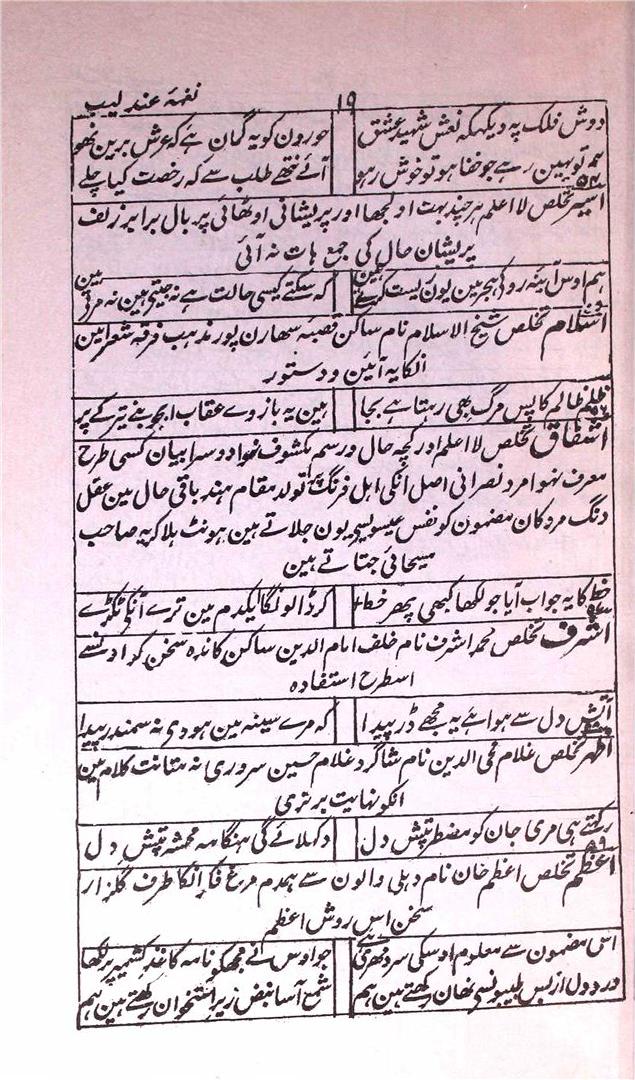 نغمۂ عندلیب ۱۹
دوش فلک پہ دیکھکہ نعش شہید عشق حورون کو یہ گمان ہے کہ عرش برین نہو
ہم تو یہین رہے جو خفا ہو تو خوش رہو آئے تھے طلب سے کہ رخصت کیا چلے
اسیر تخلص لا اعلم ہر چند بہت اولجھا اور پریشانی اوٹھائی پر بال برابر زلف
پریشان حال کی جمع ہات نہ آئی
ہم اوس آئینہ رو کی ہجر مین یون زیست کرتے ہین کہ سکتے کیسی حالت ہے نہ جیتے ہین نہ مرتے ہین
اسلام تخلص شیخ الاسلام نام ساکن قصبۂ سہارن پور مذہب فرقہ شعرا مین
انکا یہ آئین و دستور
ظلم ظالم کا پس مرگ بھی رہتا ہے بجا ہین یہ بازوے عقاب اجو بنے تیر کے پر
اشفاق تخلص لا اعلم اور کچھ حال و رسم مکشوف نہوا دوسرا بیان کسی طرح
معرف نہوا مرد نصرانی اصل انکی اہل فرنگ تولد مقام ہند باقی حال مین عقل
دنگ مردکان مضمون کو نفس عیسوی یون جلاتے ہین ہونٹ ہلا کر یہ صاحب
مسیحائی جتاتے ہین
خط کا یہ جواب آیا جو لکھا کبھی پھر خط کر ڈالونگا ایکدم مین ترے آنکے ٹکڑے
اشرف تخلص محمد اشرف نام خلف امام الدین ساکن کاندہ سخن کو اونسے
اسطرح استفادہ
آتش دل سے ہوا ہے یہ مجھے ڈر پیدا کہ مرے سینہ مین ہووی نہ سمندر پیدا
اظہر تخلص غلام محی الدین نام شاگرد غلام حسین سروری نہ متانت کلام مین
انکو نہایت برتری
رکھتے ہی مری جان کو مضطر تپش دل دکھلائے گی ہنگامہ محشر تپش دل
اعظم تخلص اعظم خان نام دہلی والون سے ہمدم مرغ فکر انکا طرف گلزار
سخن اس روش اعظم
اس مضمون سے معلوم اوسکی سرد مہری ہے جو اوس نے مجھکو نامہ کاغذ کشمیر پر لکھا
درد دل از بس نہان رکھتے ہین ہم شمع آسا نبض زیر استخوان رکھتے ہین ہم